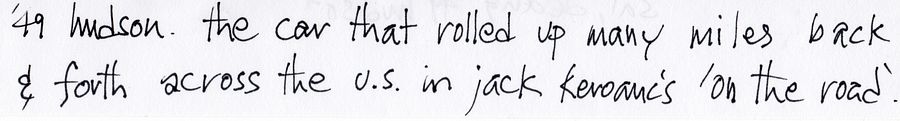 '49 hudson. the car that rolled up many miles back
& forth across the u.s. in jack keroauc's 'on the road'.